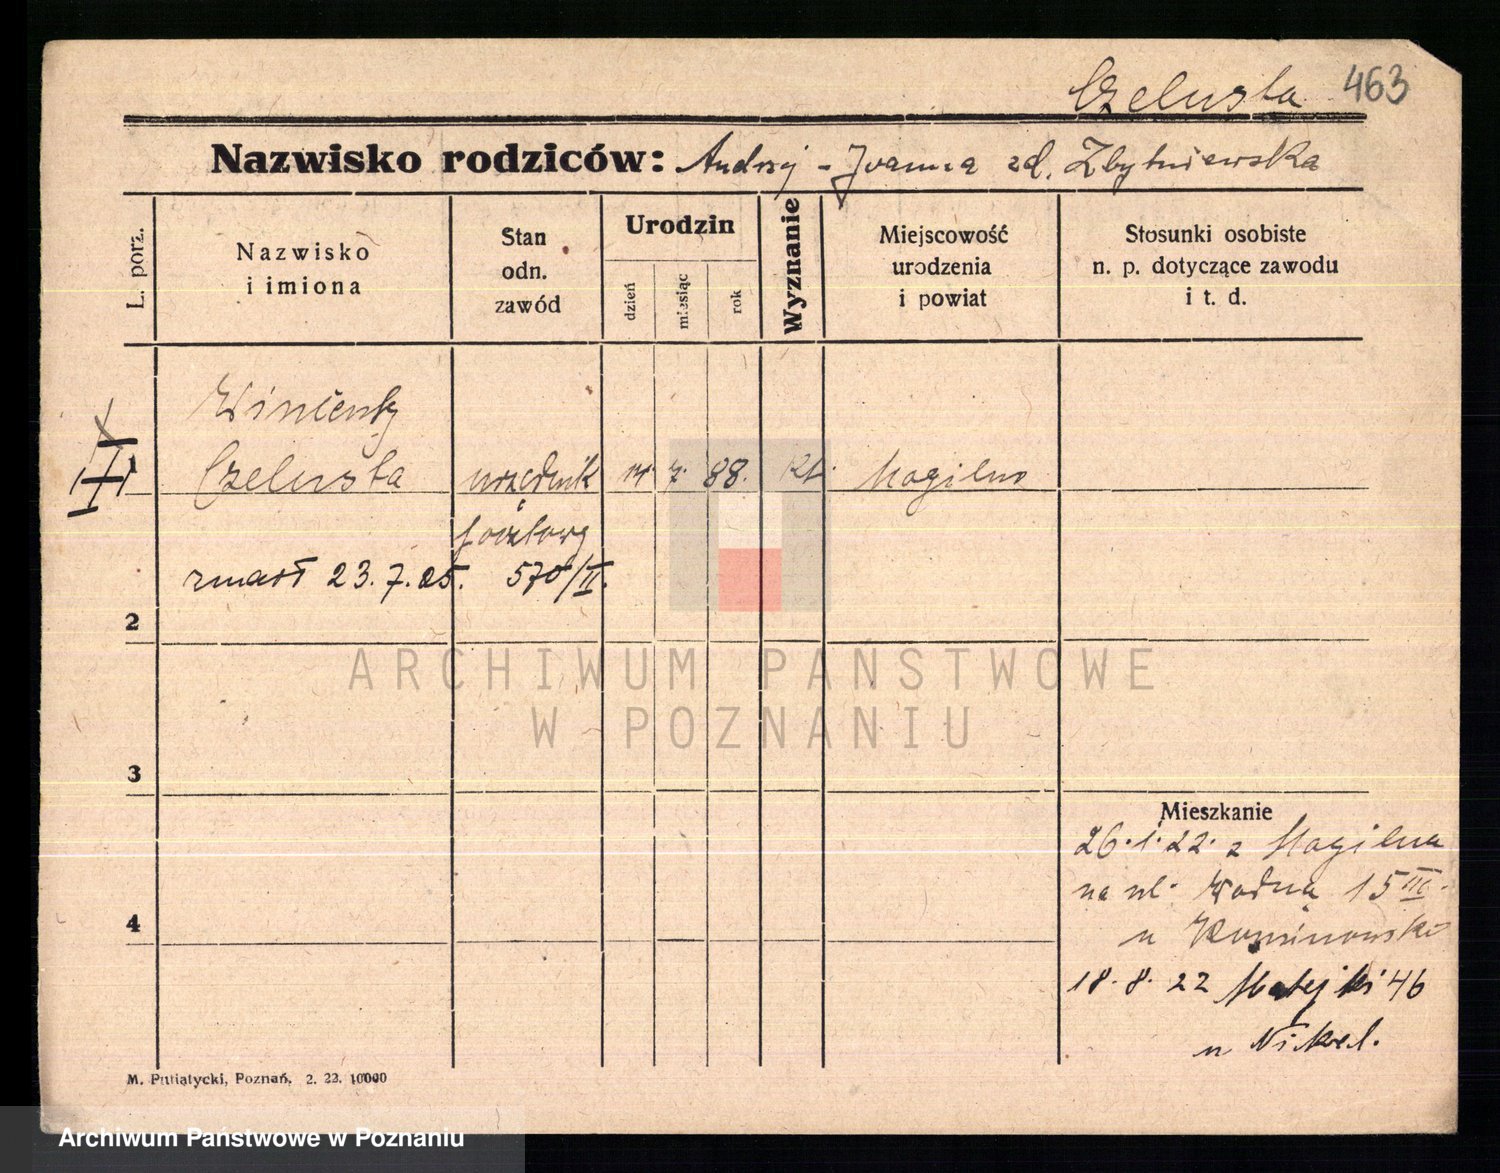 Czelusta 463
Nazwisko rodziców: Andrzej - Joanna zd. Zbytniewska
L. porz.
Nazwisko
i imiona
Stan
odn.
zawód
Urodzin
dzień
miesiąc
rok
Wyznanie
Miejscowość
urodzenia
i powiat
Stosunki osobiste
n. p. dotyczące zawodu
i t. d.
Wincenty
Czelusta urzędnik 14. 7. 88. Kt. Mogilno
pocztowy
zmarł 23.7.25. 570/II.
2
3
4
Mieszkanie
26.1.22. z Mogilna
na ul. Wodną 15 III.
u
18. 8. 22 Matejki 46
u Nikel.
M. Putiatycki, Poznań, 2. 22. 10000
ARCHIWUM PAŃSTWOWE
W POZNANIU
Archiwum Państwowe w Poznaniu